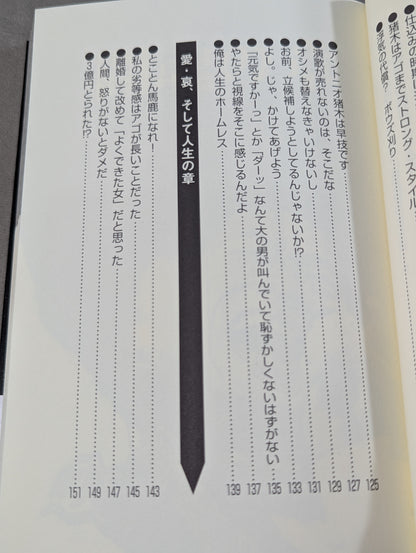 仕込みの時に
猪木はアゴまでストロング・スタイル
浮気の代償? ボウズ刈り
●アントニオ猪木は早技です……125
●演歌が売れないのは、そこだな……127
●オシメも替えなきゃいけないし……129
●お前、立候補しようとしてるんじゃないか!?……131
●よし。じゃ、かけてあげよう……133
●「元気ですかーっ」とか「ダーッ」なんて大の男が叫んでいて恥ずかしくないはずがない……135
●やたらと視線をそこに感じるんだよ……137
●俺は人生のホームレス……139
愛・哀、そして人生の章
●とことん馬鹿になれ!……143
●私の劣等感はアゴが長いことだった……145
●離婚して改めて「よくできた女」だと思った……147
●人間、怒りがないとダメだ……149
●3億円とられた!?……151